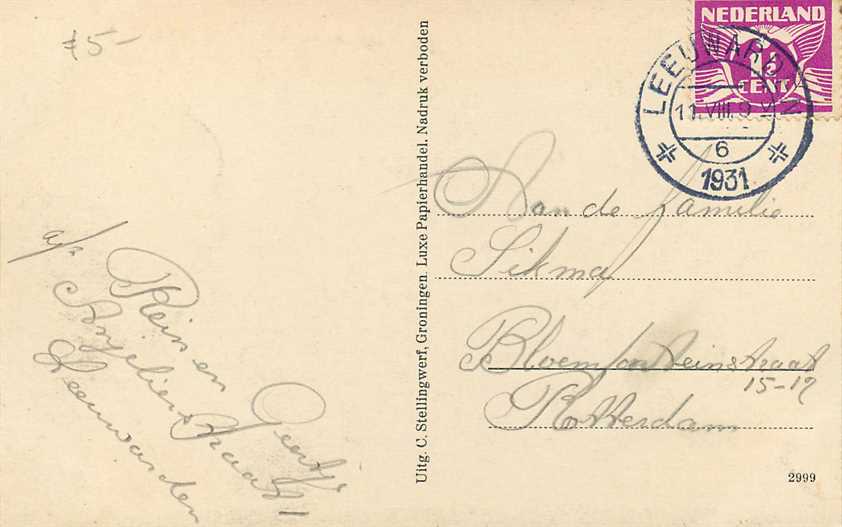 f5-
NEDERLAND
1½
CENT
LEEUWARDEN
11.VIII.9
6
1931
Uitg. C. Stellingwerf, Groningen. Luxe Papierhandel. Nadruk verboden
Aan de familie
Sikma
Bloemfonteinstraat
15-17
Rotterdam
a/z
Rein en Geertje
Anjelierstraat 1
Leeuwarden
2999